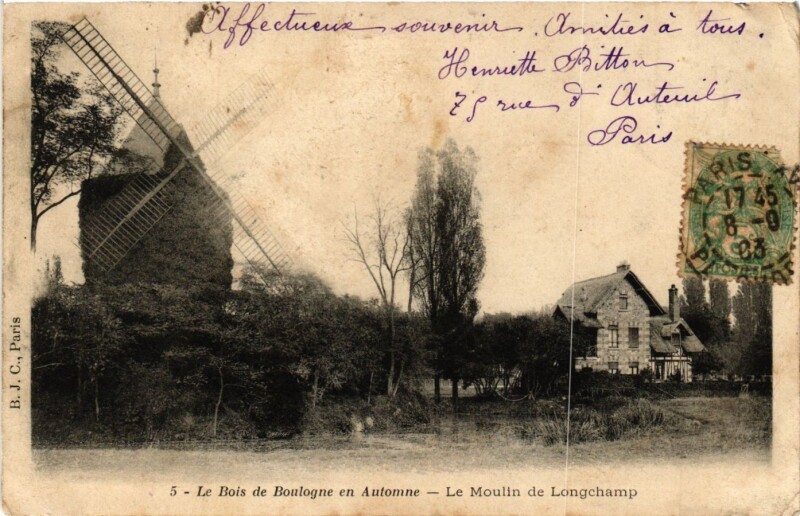 Affectueux souvenir. Amitiés à tous.
Henriette Bitton
75 rue d'Auteuil
Paris
PARIS
17 45
8 - 9
03
B. J. C., Paris
5 - Le Bois de Boulogne en Automne — Le Moulin de Longchamp